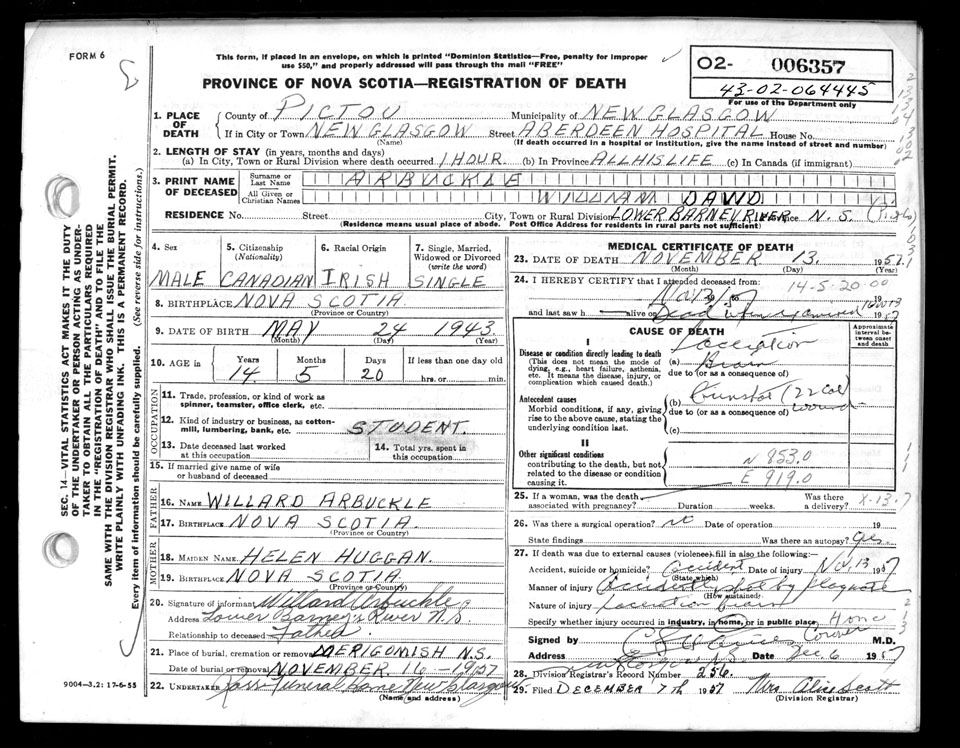 FORM 6
This form, if placed in an envelope, on which is printed "Dominion Statistics—Free, penalty for improper
use $50," and properly addressed will pass through the mail "FREE"
PROVINCE OF NOVA SCOTIA—REGISTRATION OF DEATH
O2- 006357
43-02-064445
For use of the Department only
1. PLACE OF DEATH
County of PICTOU Municipality of NEW GLASGOW
If in City or Town NEW GLASGOW Street ABERDEEN HOSPITAL House No.
(Name) (If death occurred in a hospital or institution, give the name instead of street and number)
2. LENGTH OF STAY (in years, months and days)
(a) In City, Town or Rural Division where death occurred 1 HOUR. (b) In Province ALL HIS LIFE (c) In Canada (if immigrant)
3. PRINT NAME OF DECEASED
Surname or Last Name ARBUCKLE
All Given or Christian Names DAVID
RESIDENCE No. Street City, Town or Rural Division LOWER BARNEY RIVER N. S.
(Residence means usual place of abode. Post Office Address for residents in rural parts not sufficient)
4. Sex MALE
5. Citizenship (Nationality) CANADIAN
6. Racial Origin IRISH
7. Single, Married, Widowed or Divorced (write the word) SINGLE
8. BIRTHPLACE NOVA SCOTIA
(Province or Country)
9. DATE OF BIRTH MAY 24 1943
(Month) (Day) (Year)
10. AGE in Years 14 Months 5 Days 20 If less than one day old hrs. or min.
OCCUPATION
11. Trade, profession, or kind of work as spinner, teamster, office clerk, etc.
12. Kind of industry or business, as cotton-mill, lumbering, bank, etc. STUDENT.
13. Date deceased last worked at this occupation
14. Total yrs. spent in this occupation
15. If married give name of wife or husband of deceased
FATHER
16. NAME WILLARD ARBUCKLE
17. BIRTHPLACE NOVA SCOTIA.
(Province or Country)
MOTHER
18. MAIDEN NAME. HELEN HUGGAN.
19. BIRTHPLACE NOVA SCOTIA
(Province or Country)
20. Signature of informant Willard Arbuckle
Address Lower Barney's River N.S.
Relationship to deceased Father
21. Place of burial, cremation or removal MERIGOMISH N.S.
Date of burial or removal NOVEMBER 16 - 1957
22. UNDERTAKER Funeral Home New Glasgow
(Name and address)
MEDICAL CERTIFICATE OF DEATH
23. DATE OF DEATH NOVEMBER 13. 1957.
(Month) (Day) (Year)
24. I HEREBY CERTIFY that I attended deceased from:
14-5-20-00
19
and last saw h alive on Dead 1957
CAUSE OF DEATH
Approximate interval between onset and death
I
Disease or condition directly leading to death
(This does not mean the mode of dying, e.g., heart failure, asthenia, etc. It means the disease, injury, or complication which caused death.)
(a) Laceration Brain
due to (or as a consequence of)
Antecedent causes
Morbid conditions, if any, giving rise to the above cause, stating the underlying condition last.
(b) Gunshot (22 Cal) wound
due to (or as a consequence of)
(c)
II
Other significant conditions
contributing to the death, but not related to the disease or condition causing it.
N 853.0
E 919.0
25. If a woman, was the death associated with pregnancy? Duration weeks. Was there a delivery?
X-13-7
26. Was there a surgical operation? no Date of operation 19
State findings Was there an autopsy? yes
27. If death was due to external causes (violence) fill in also the following:—
Accident, suicide or homicide? Accident Date of injury Nov 13 1957
(State which)
Manner of injury Accidently shot by playmate
(How sustained)
Nature of injury Laceration brain
Specify whether injury occurred in industry, in home, or in public place, Home
Signed by Coroner M.D.
Address Date Dec. 6 1957
28. Division Registrar's Record Number 256.
29. Filed DECEMBER 7th 1957 Mrs Alice Scott
(Division Registrar)
SEC. 14—VITAL STATISTICS ACT MAKES IT THE DUTY
OF THE UNDERTAKER OR PERSON ACTING AS UNDER-
TAKER TO OBTAIN ALL THE PARTICULARS REQUIRED
IN THE "REGISTRATION OF DEATH" AND TO FILE THE
SAME WITH THE DIVISION REGISTRAR WHO SHALL ISSUE THE BURIAL PERMIT.
WRITE PLAINLY WITH UNFADING INK. THIS IS A PERMANENT RECORD.
Every item of information should be carefully supplied. (See reverse side for instructions.)
9004—3.2: 17-6-55